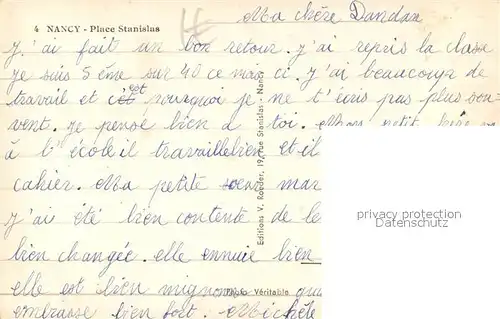 4 NANCY - Place Stanislas
Ma chère Dandan
j'ai fait un bon retour. j'ai repris la classe
je suis 5 ème sur 40 ce mois ci. j'ai beaucoup de
travail et c'est pourquoi je ne t'écris pas plus sou-
vent. je pense bien à toi. Mon petit
à l'école il travaille bien et il
cahier. Ma petite soeur mar
j'ai été bien contente de le
bien changée. elle ennuie bien
elle est bien mignonne qu
embrasse bien fort. Michèle
Editions V. Roeder, 19, Place Stanislas - Nancy
Véritable
privacy protection
Datenschutz